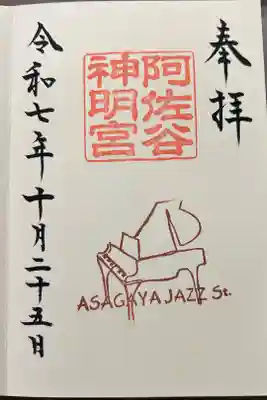 奉拝
阿佐谷
神明宮
令和七年十月二十五日
ASAGAYA JAZZ St.